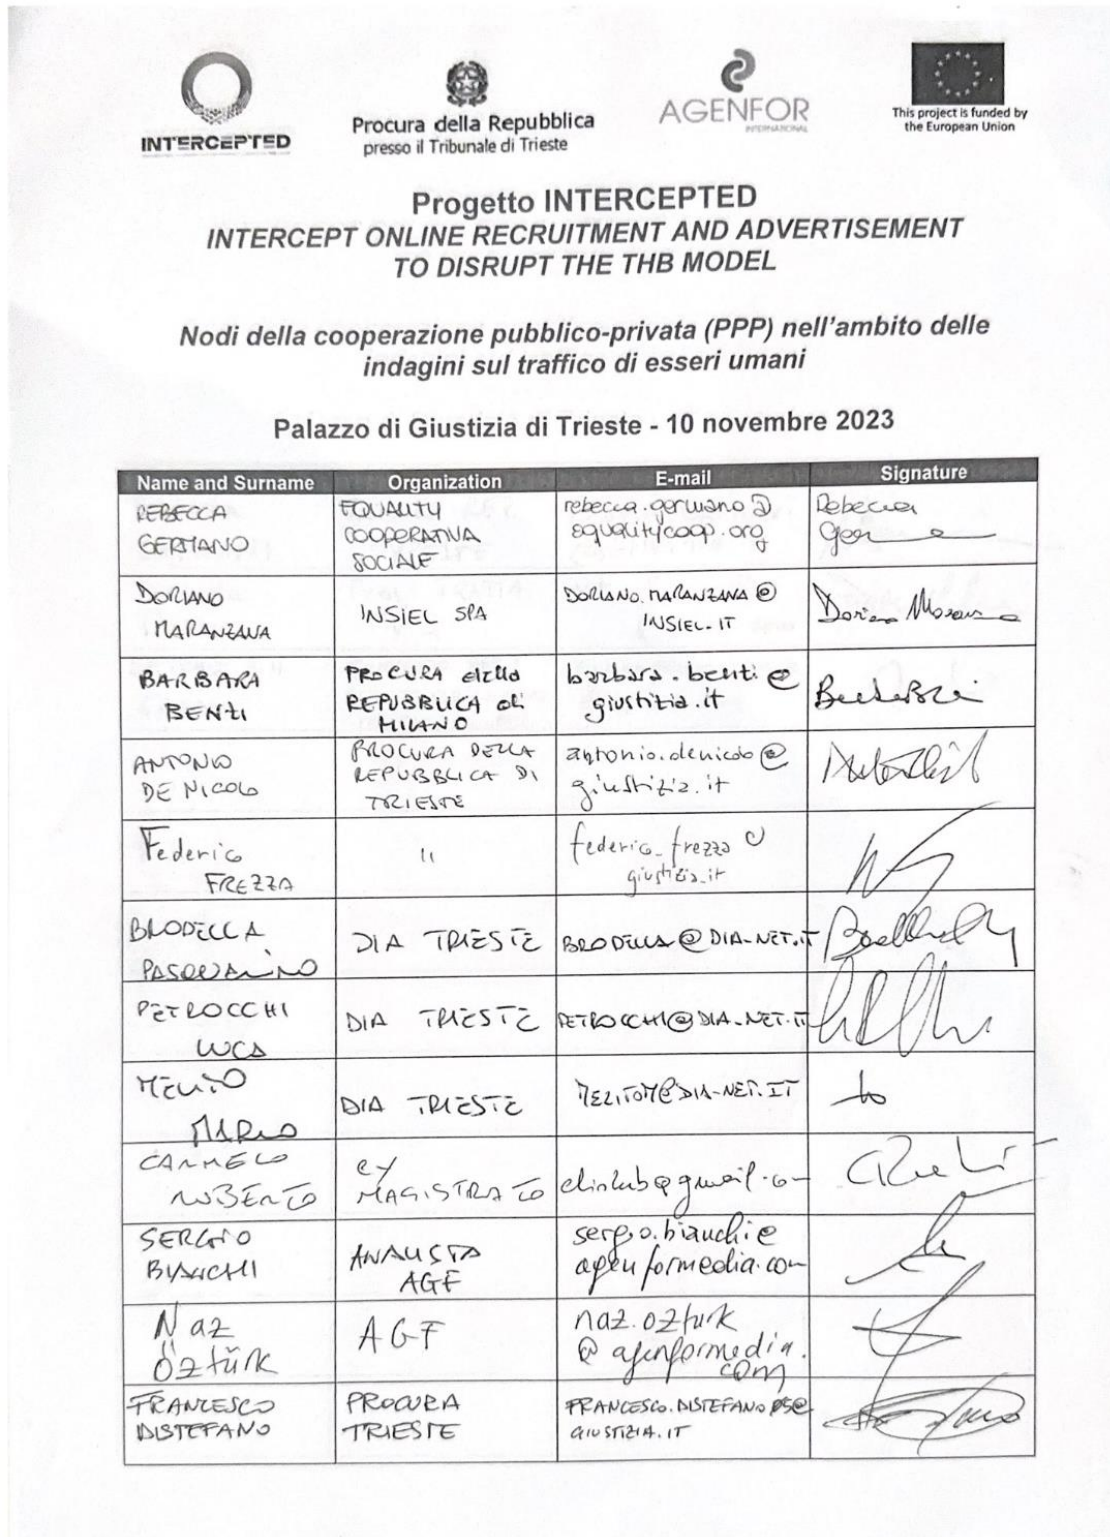 INTERCEPTED
Procura della Repubblica
presso il Tribunale di Trieste
AGENFOR
INTERNATIONAL
This project is funded by
the European Union
Progetto INTERCEPTED
INTERCEPT ONLINE RECRUITMENT AND ADVERTISEMENT
TO DISRUPT THE THB MODEL
Nodi della cooperazione pubblico-privata (PPP) nell'ambito delle
indagini sul traffico di esseri umani
Palazzo di Giustizia di Trieste - 10 novembre 2023
Name and Surname Organization E-mail Signature
REBECCA
GERMANO
EQUALITY
COOPERATIVA
SOCIALE
rebecca.germano@
equalitycoop.org
Rebecca
DORIANO
MARANZANA
INSIEL SPA
DORIANO.MARANZANA@
INSIEL.IT
BARBARA
BENZI
PROCURA della
REPUBBLICA di
MILANO
barbara.benzi@
giustizia.it
ANTONIO
DE NICOLO
PROCURA DELLA
REPUBBLICA DI
TRIESTE
antonio.denicolo@
giustizia.it
Federico
FREZZA
"
federico.frezza@
giustizia.it
BRODELLA
PASQUALINO
DIA TRIESTE
BRODELLA@DIA-NET.IT
PETROCCHI
LUCA
DIA TRIESTE
PETROCCHI@DIA-NET.IT
MARIO
DIA TRIESTE
CARMELO
RUBERTO
ex
MAGISTRATO
SERGIO
BIANCHI
ANALISTA
AGF
sergio.bianchi@
agenformedia.com
Naz
Öztürk
AGF
naz.ozturk
@agenformedia.
com
FRANCESCO
DISTEFANO
PROCURA
TRIESTE
FRANCESCO.DISTEFANO.PS@
GIUSTIZIA.IT